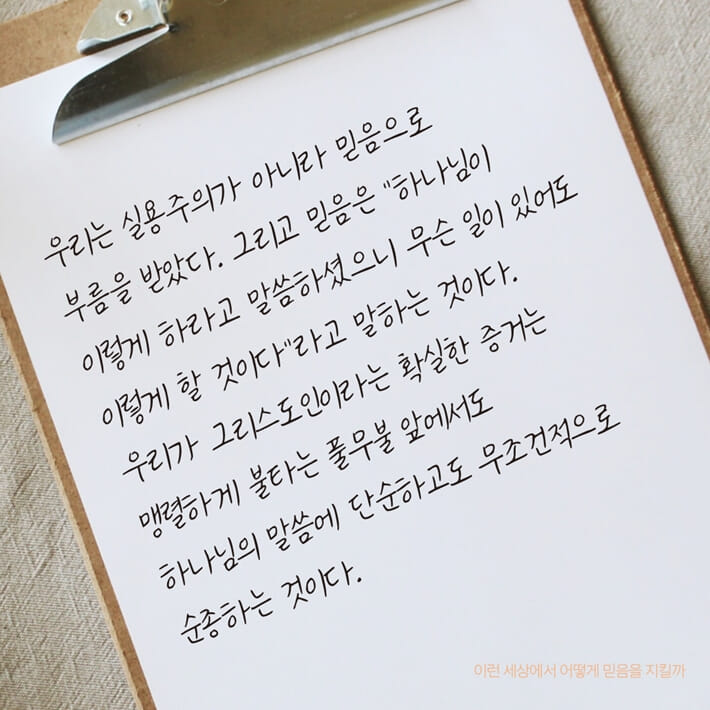 우리는 실용주의가 아니라 믿음으로
부름을 받았다. 그리고 믿음은 "하나님이
이렇게 하라고 말씀하셨으니 무슨 일이 있어도
이렇게 할 것이다"라고 말하는 것이다.
우리가 그리스도인이라는 확실한 증거는
맹렬하게 불타는 풀무불 앞에서도
하나님의 말씀에 단순하고도 무조건적으로
순종하는 것이다.
이런 세상에서 어떻게 믿음을 지킬까